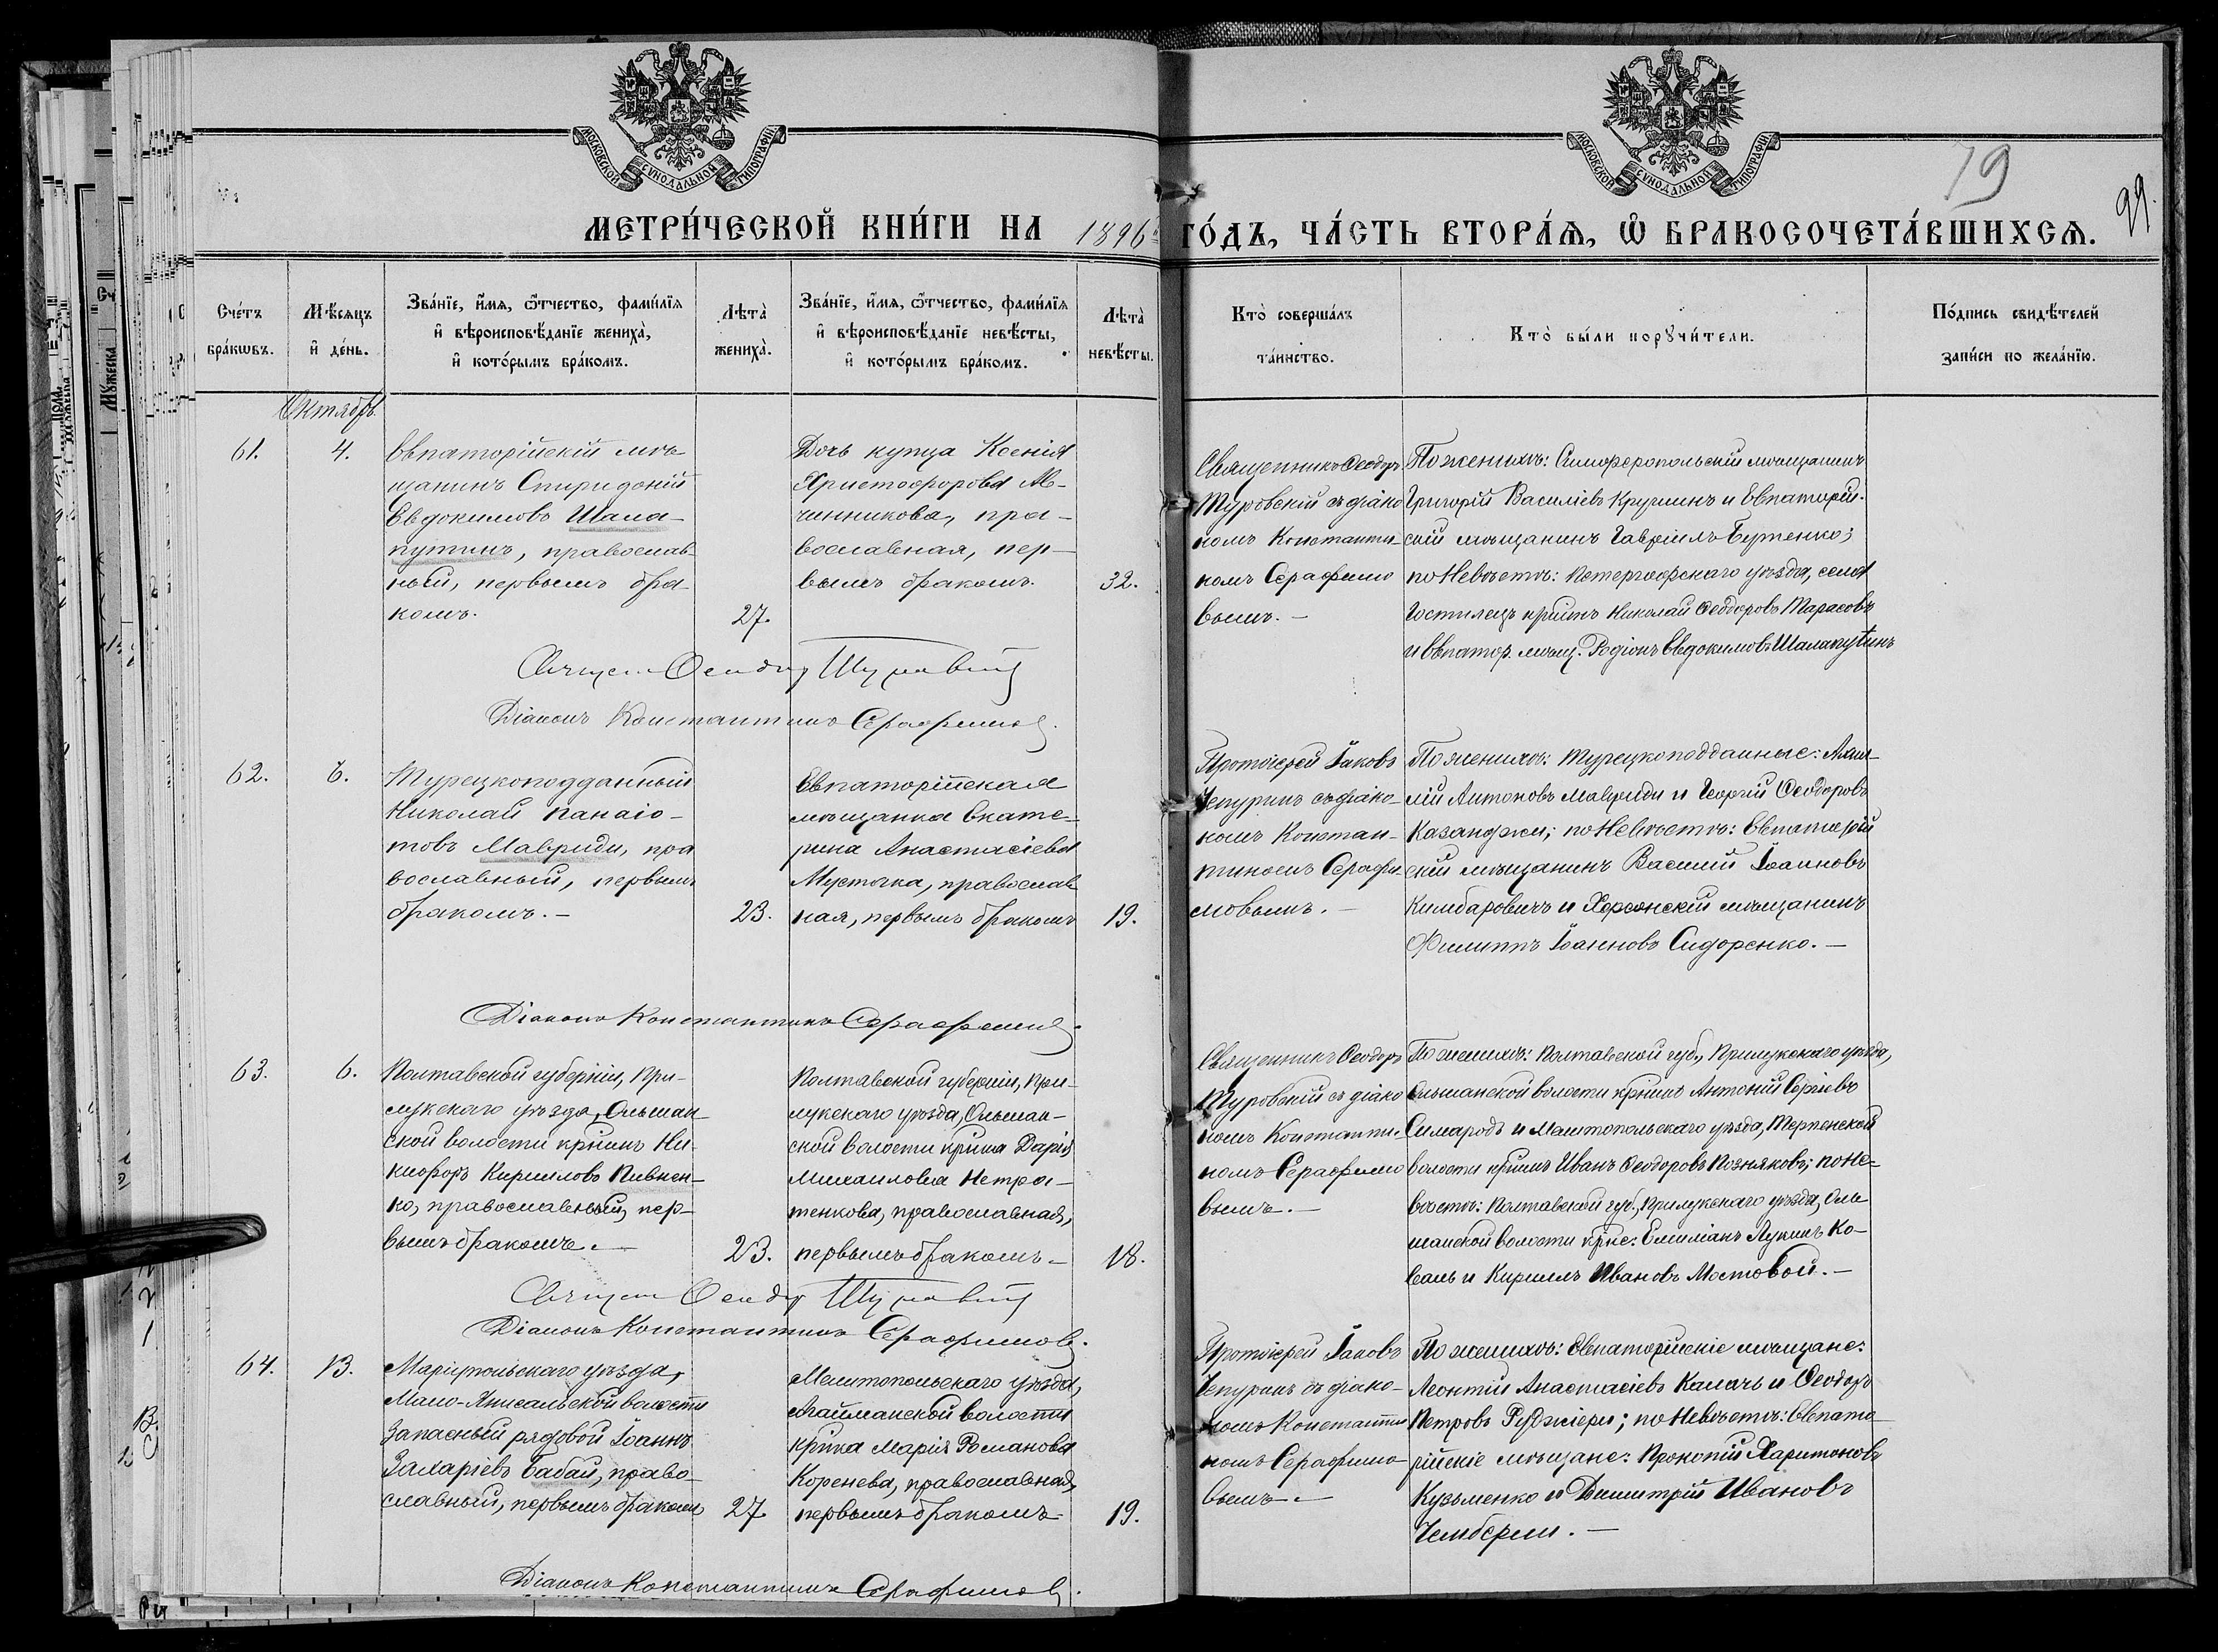 МОСКОВСКОЙ СѴНОДАЛЬНОЙ ТИПОГРАФІИ
МОСКОВСКОЙ СѴНОДАЛЬНОЙ ТИПОГРАФІИ
79
99.
МЕТРИ́ЧЕСКОЙ КНИ́ГИ НА 1896й ГО́ДЪ, ЧА́СТЬ ВТОРА́Ѧ, Ѽ БРАКОСОЧЕТА́ВШИХСѦ.
Сче́тъ
бра́кѡвъ.
Мѣ́сѧцъ
и҆ де́нь.
Зва́нїе, и҆́мѧ, ѻ҆́тчество, фами́лїѧ
и҆ вѣроисповѣ́данїе жениха̀,
и҆ кото́рымъ бра́комъ.
Лѣта̀
жениха̀.
Зва́нїе, и҆́мѧ, ѻ҆́тчество, фами́лїѧ
и҆ вѣроисповѣ́данїе невѣ́сты,
и҆ кото́рымъ бра́комъ.
Лѣта̀
невѣ́сты.
Кто̀ соверша́лъ
та́инство.
Кто̀ бы́ли порꙋчи́тели.
По́дпись свидѣ́телей
за́писи по жела́нїю.
Октябрь.
61.
4.
Евпаторійскій мѣ-
щанинъ Спиридоній
Евдокимовъ Шала-
путинъ, православ-
ный, первымъ бра-
комъ.
27.
Дочь купца Ксенія
Христофорова
чинникова, пра-
вославная, пер-
вымъ бракомъ.
32.
Священникъ Ѳеодоръ
Туровскій съ діако
номъ Константи-
номъ Серафимо
вымъ. —
По женихѣ: Симферопольскій мѣщанинъ
Григорій Василіевъ и Евпаторій-
скій мѣщанинъ Гавріилъ Бутенко;
по Невѣстѣ: Петергофскаго уѣзда, села
Гостилецъ кр̃нинъ Николай Ѳеодоровъ Тарасовъ
и Евпатор. мѣщ. Родіонъ Евдокимовъ Шалапутинъ
Священ. Ѳеодоръ Туровскій
Діаконъ Константинъ Серафимовъ.
62.
6.
Турецкоподданный
Николай Панаіо-
товъ Мавриди, пра
вославный, первымъ
бракомъ. —
23.
Евпаторійская
мѣщанка Екате-
рина Анастасіева
православ
ная, первымъ бракомъ
19.
Протоіерей Іаковъ
Чепуринъ съ діако-
номъ Констан-
тиномъ Серафи-
мовымъ. —
По женихѣ: Турецкоподданные:
Антоновъ Мавриди и Георгій Ѳеодоровъ
Казанджи; по Невѣстѣ: Евпаторій
скій мѣщанинъ Василій Іоанновъ
Кимбаровичъ и Херсонскій мѣщанинъ
Филиппъ Іоанновъ Сидоренко. —
Діаконъ Константинъ Серафимовъ.
63.
6.
Полтавской губерніи, При-
лукскаго уѣзда, Ольшан-
ской волости кр̃нинъ Ни-
кифоръ Кирилловъ Пивнен-
ко, православный, пер-
вымъ бракомъ. —
23.
Полтавской губерніи, При-
лукскаго уѣзда, Ольшан-
ской волости кр̃нка Дарія
Михаилова Петра-
тенкова, православная,
первымъ бракомъ —
18.
Священникъ Ѳеодоръ
Туровскій съ діако
номъ Константи-
номъ Серафимо
вымъ. —
По женихѣ: Полтавской губ., Прилукскаго уѣзда,
Ольшанской волости кр̃нинъ Антоній Сергіевъ
Симародъ и Мелитопольскаго уѣзда, Терпенской
волости кр̃нинъ Иванъ Ѳеодоровъ Позняковъ; по Не-
вѣстѣ: Полтавской губ., Прилукскаго уѣзда, Оль
шанской волости кр̃не: Емиліанъ Лукинъ Ко-
валь и Кириллъ Ивановъ Мостовой. —
Священ. Ѳеодоръ Туровскій
Діаконъ Константинъ Серафимовъ.
64.
13.
Маріупольскаго уѣзда,
Мало-Янисальской волости
запасный рядовой Іоаннъ
Захаріевъ Бабай, право-
славный, первымъ бракомъ
27.
Мелитопольскаго уѣзда,
Агайманской волости
кр̃нка Марія Романова
Коренева, православная,
первымъ бракомъ
19.
Протоіерей Іаковъ
Чепуринъ съ діако-
номъ Константи
номъ Серафимо-
вымъ —
По женихѣ: Евпаторійскіе мѣщане:
Леонтій Анастасіевъ Калачъ и Ѳеодоръ
Петровъ Руджіери; по Невѣстѣ: Евпато-
рійскіе мѣщане: Прокопій Харитоновъ
Кузьменко и Димитрій Ивановъ
Чембери. —
Діаконъ Константинъ Серафимовъ.